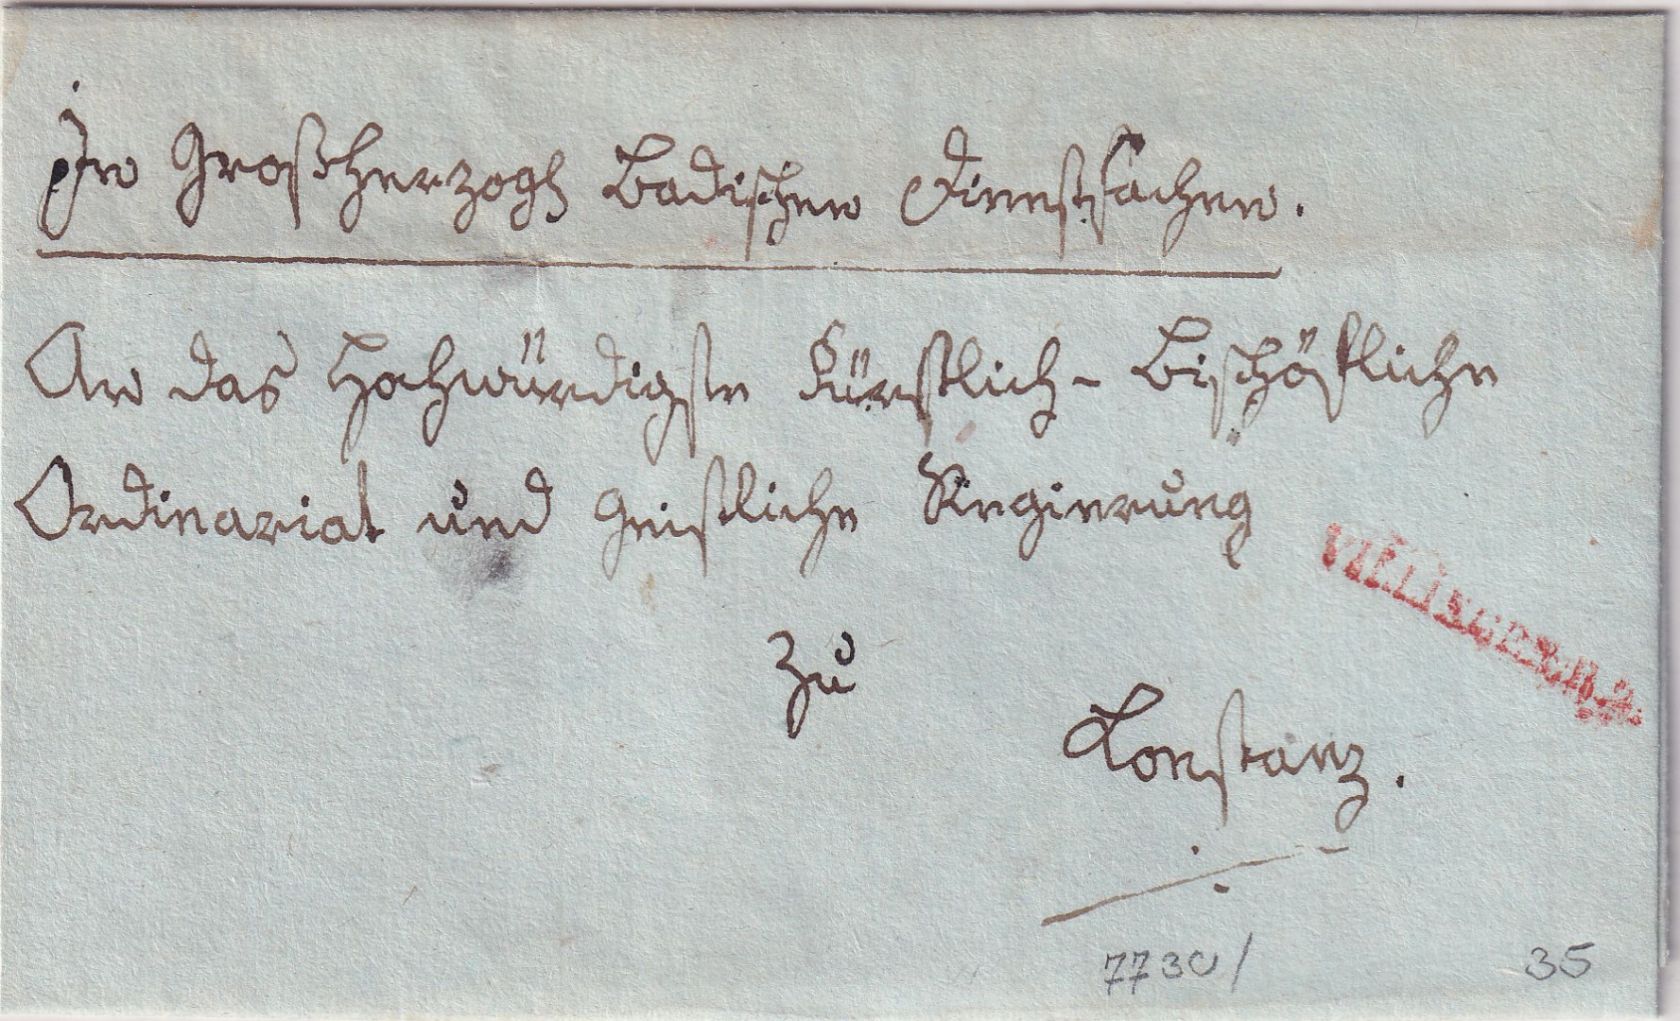 In Großherzogl Badischen Dienstsachen.
An das Hochwürdigste Fürstlich- Bischöfliche
Ordinariat und Geistliche Regierung
VILLINGEN.R.2.
zu
Constanz.
7730/
35